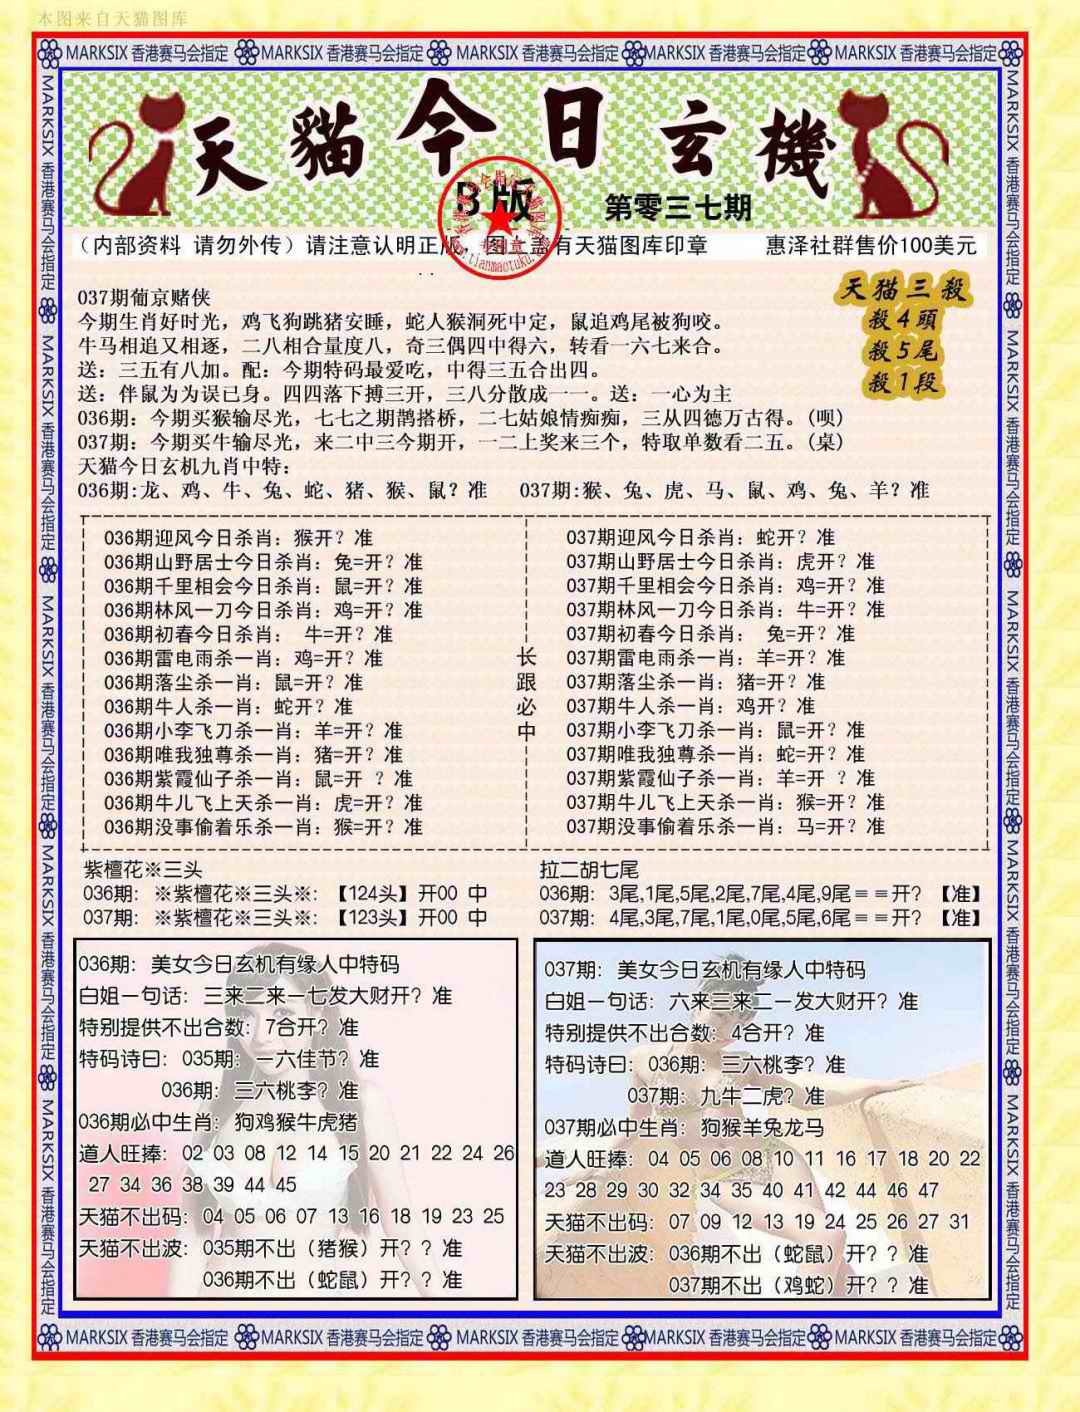 本图来自天猫图库
MARKSIX 香港赛马会指定 MARKSIX 香港赛马会指定 MARKSIX 香港赛马会指定 MARKSIX 香港赛马会指定 MARKSIX 香港赛马会指定
天貓今日玄機
B版
第零三七期
（内部资料 请勿外传）请注意认明正版，图上盖有天猫图库印章 惠泽社群售价100美元
天猫三殺
殺4頭
殺5尾
殺1段
037期葡京赌侠
今期生肖好时光，鸡飞狗跳猪安睡，蛇人猴洞死中定，鼠追鸡尾被狗咬。
牛马相追又相逐，二八相合量度八，奇三偶四中得六，转看一六七来合。
送：三五有八加。配：今期特码最爱吃，中得三五合出四。
送：伴鼠为为误已身。四四落下搏三开，三八分散成一一。送：一心为主
036期：今期买猴输尽光，七七之期鹊搭桥，二七姑娘情痴痴，三从四德万古得。(呗)
037期：今期买牛输尽光，来二中三今期开，一二上奖来三个，特取单数看二五。(桌)
天猫今日玄机九肖中特：
036期:龙、鸡、牛、兔、蛇、猪、猴、鼠？准 037期:猴、兔、虎、马、鼠、鸡、兔、羊？准
036期迎风今日杀肖：猴开？准
036期山野居士今日杀肖：兔=开？准
036期千里相会今日杀肖：鼠=开？准
036期林风一刀今日杀肖：鸡=开？准
036期初春今日杀肖： 牛=开？准
036期雷电雨杀一肖：鸡=开？准
036期落尘杀一肖：鼠=开？准
036期牛人杀一肖：蛇开？准
036期小李飞刀杀一肖：羊=开？准
036期唯我独尊杀一肖：猪=开？准
036期紫霞仙子杀一肖：鼠=开 ？准
036期牛儿飞上天杀一肖：虎=开？准
036期没事偷着乐杀一肖：猴=开？准
长跟必中
037期迎风今日杀肖：蛇开？准
037期山野居士今日杀肖：虎开？准
037期千里相会今日杀肖：鸡=开？准
037期林风一刀今日杀肖：牛=开？准
037期初春今日杀肖： 兔=开？准
037期雷电雨杀一肖：羊=开？准
037期落尘杀一肖：猪=开？准
037期牛人杀一肖：鸡开？准
037期小李飞刀杀一肖：鼠=开？准
037期唯我独尊杀一肖：蛇=开？准
037期紫霞仙子杀一肖：羊=开 ？准
037期牛儿飞上天杀一肖：猴=开？准
037期没事偷着乐杀一肖：马=开？准
紫檀花※三头
036期：※紫檀花※三头※:【124头】开00 中
037期：※紫檀花※三头※:【123头】开00 中
拉二胡七尾
036期：3尾,1尾,5尾,2尾,7尾,4尾,9尾＝＝开？【准】
037期：4尾,3尾,7尾,1尾,0尾,5尾,6尾＝＝开？【准】
036期：美女今日玄机有缘人中特码
白姐一句话：三来二来一七发大财开？准
特别提供不出合数：7合开？准
特码诗曰：035期：一六佳节？准
036期：三六桃李？准
036期必中生肖：狗鸡猴牛虎猪
道人旺捧：02 03 08 12 14 15 20 21 22 24 26
27 34 36 38 39 44 45
天猫不出码：04 05 06 07 13 16 18 19 23 25
天猫不出波：035期不出（猪猴）开？？准
036期不出（蛇鼠）开？？准
037期：美女今日玄机有缘人中特码
白姐一句话：六来三来二一发大财开？准
特别提供不出合数：4合开？准
特码诗曰：036期：三六桃李？准
037期：九牛二虎？准
037期必中生肖：狗猴羊兔龙马
道人旺捧：04 05 06 08 10 11 16 17 18 20 22
23 28 29 30 32 34 35 40 41 42 44 46 47
天猫不出码：07 09 12 13 19 24 25 26 27 31
天猫不出波：036期不出（蛇鼠）开？？准
037期不出（鸡蛇）开？？准
MARKSIX 香港赛马会指定 MARKSIX 香港赛马会指定 MARKSIX 香港赛马会指定 MARKSIX 香港赛马会指定 MARKSIX 香港赛马会指定
MARKSIX 香港赛马会指定 MARKSIX 香港赛马会指定 MARKSIX 香港赛马会指定 MARKSIX 香港赛马会指定 MARKSIX 香港赛马会指定
MARKSIX 香港赛马会指定 MARKSIX 香港赛马会指定 MARKSIX 香港赛马会指定 MARKSIX 香港赛马会指定 MARKSIX 香港赛马会指定